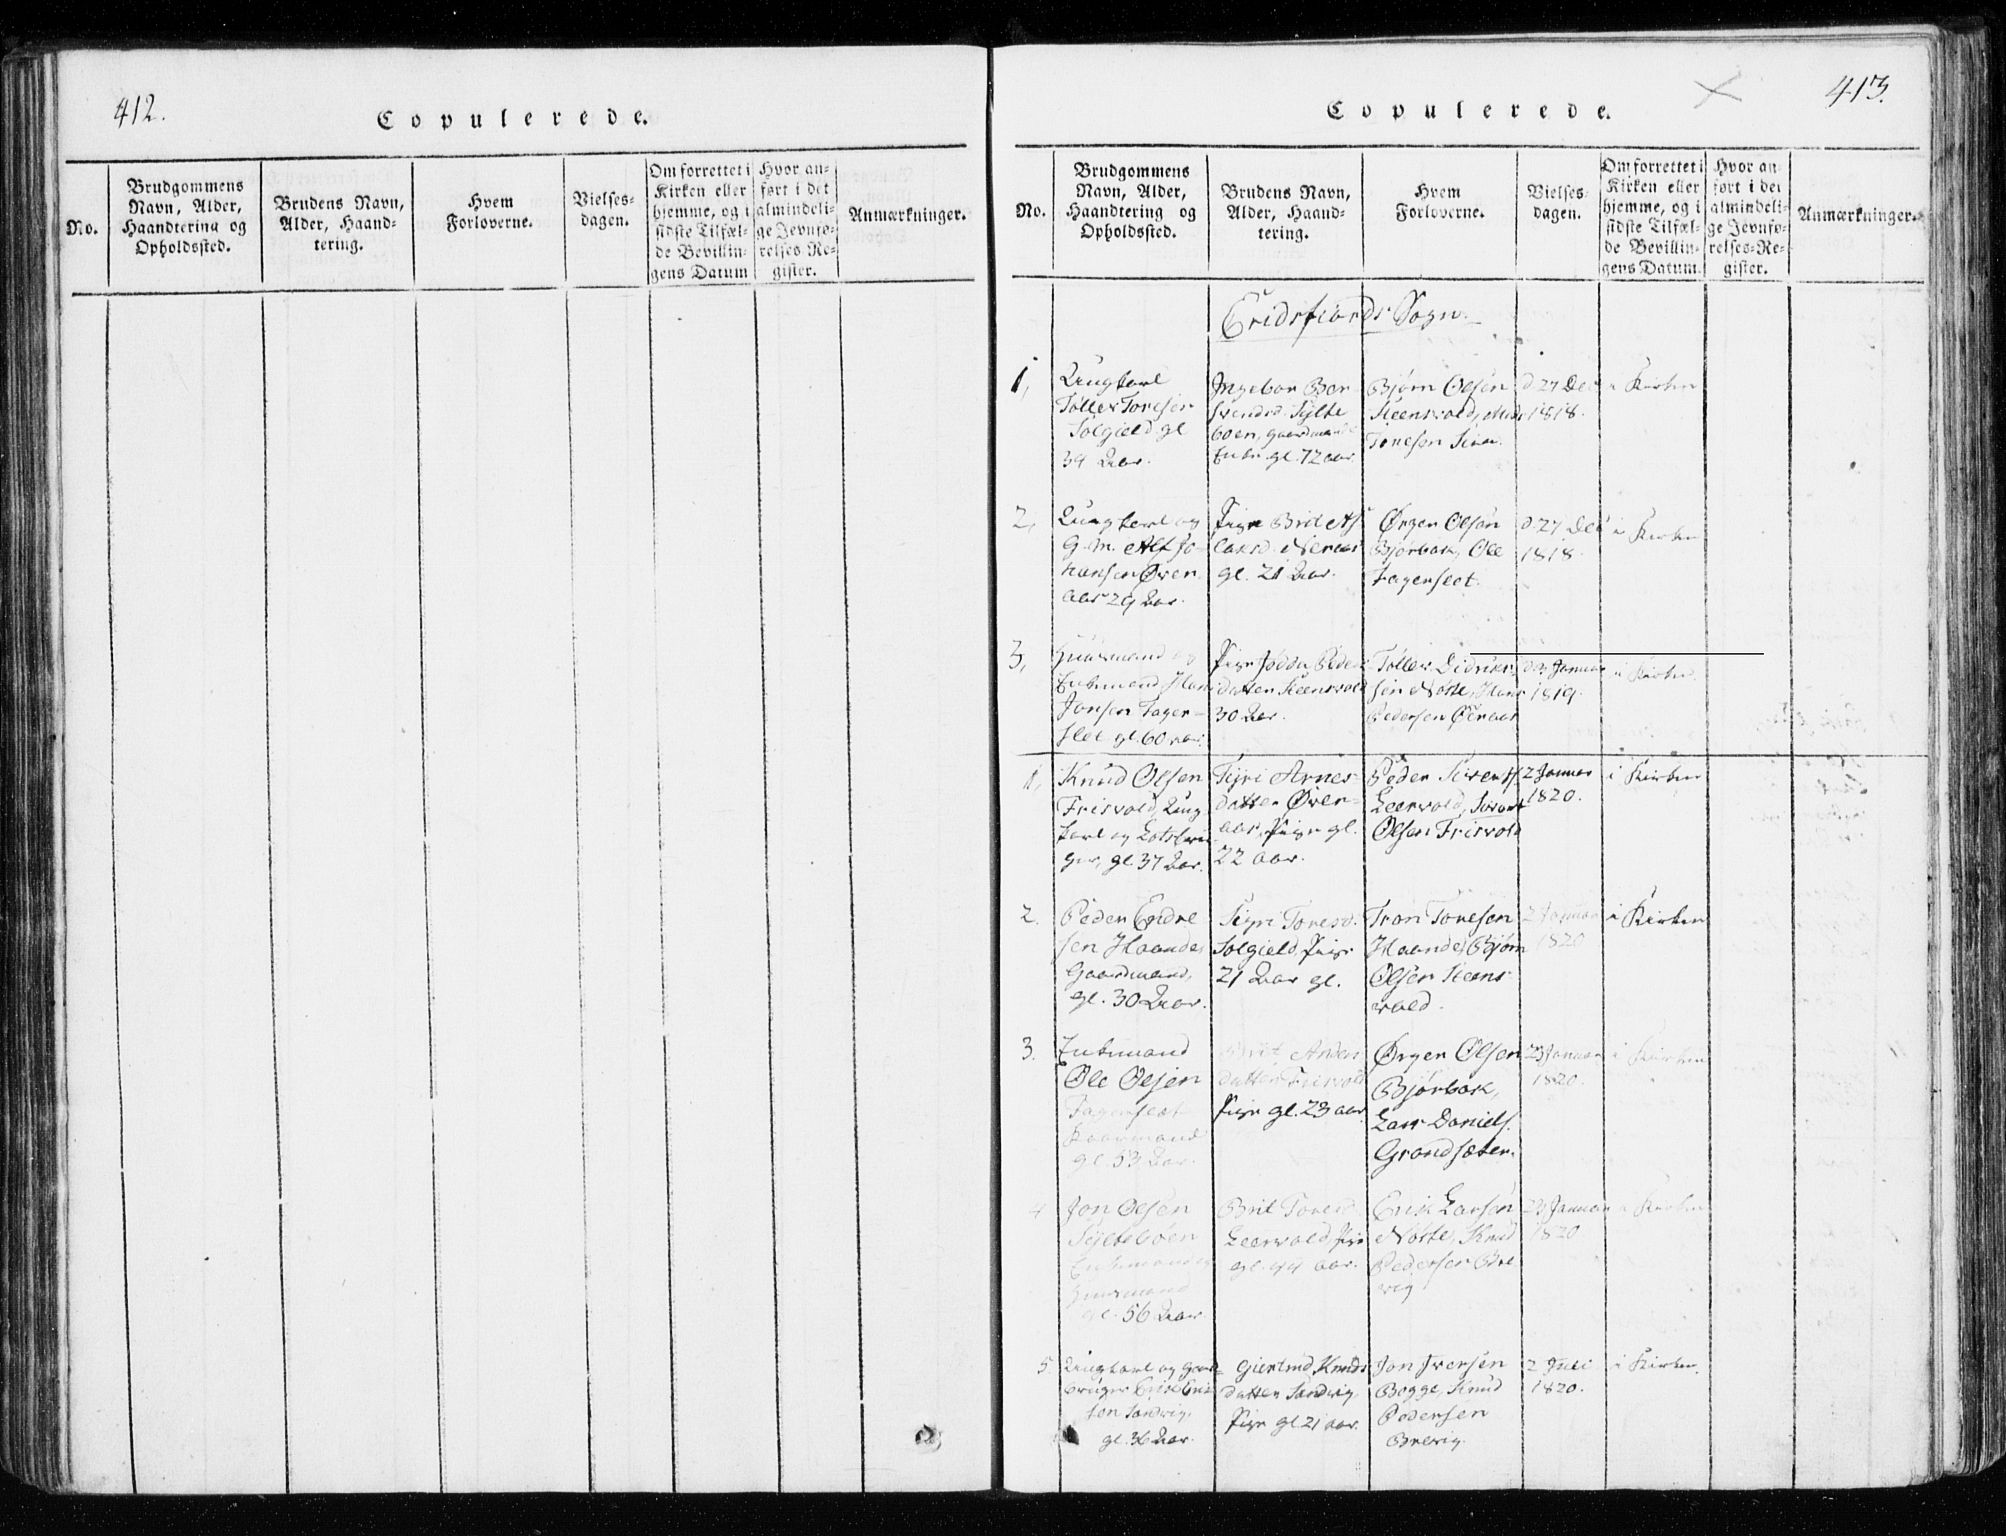 412.
Copulerede.
No.
Brudgommens
Navn, Alder,
Haandtering og
Opholdssted.
Brudens Navn,
Alder, Haand-
tering.
Hvem
Forloverne.
Vielses-
dagen.
Om forrettet i
Kirken eller
hjemme, og i
sidste Tilfæl-
de Bevillin-
gens Datum
Hvor an-
ført i det
almindeli-
ge Jevnfø-
relses-Re-
gister.
Anmærkninger.
413.
Copulerede.
No.
Brudgommens
Navn, Alder,
Haandtering og
Opholdssted.
Brudens Navn,
Alder, Haand-
tering.
Hvem
Forloverne.
Vielses-
dagen.
Om forrettet i
Kirken eller
hjemme, og i
sidste Tilfæl-
de Bevillin-
gens Datum.
Hvor an-
ført i det
almindeli-
ge Jevnfø-
relses-Re-
gister.
Anmærkninger.
Eridsfiords Sogn.
1,
Ungkarl
Toller Toresen
Solgield gl
34 Aar.
Ingebor
Sylte
boen, gaardmands
Enke gl. 72 aar.
Bjørn Olsen
Steensvold,
Toresen
d 27 Dec
1818.
i Kirken
2,
Ungkarl og
G. m. Alf Jo-
hansen Øver
aas 29 Aar.
Pige Brit As
laksd. Neraas
gl. 21 Aar.
Ørgen Olsøn
Bjørbak, Ole
Fagerslet.
d 27 Dec
1818.
i Kirken
3,
Huusmand og
Enkemand Hans
Jonsen Fager-
slet gl. 60 aar.
Pige Peders
datter Steensvold
30 Aar.
Toller Didriks
sen Nøste, Hans
Pedersen Øeraas
d 3 Januar
1819.
i Kirken.
1,
Knud Olsen
Frisvold, Ung
karl og
ger, gl. 37 Aar.
Sigri Arnes-
datter Øver-
aas, Pige gl.
22 aar.
Peder Sivertss.
Leervold, Sivert
Olsen Frisvold
2 Januar
1820.
i Kirken
2.
Peder Endre
sen Haande
Gaardmand,
gl. 30 Aar.
Sigri Toresd.
Solgield, Pige
21 Aar gl.
Tron Toresen
Haande, Bjørn
Olsen Steens
vold.
2 Januar
1820
i Kirken
3.
Enkemand
Ole Olsen
Fagerslet
gl. 53 Aar.
Brit Anders
datter Frisvold
Pige gl. 23 aar
Ørgen Olsen
Bjørbak,
Lars Daniels.
Grandsæter.
23 Januar
1820.
i Kirken
4
Jon Olsen
Syltebøen
Enkemand og
Huusmand
gl. 56 Aar
Brit Toresd
Leervold, Pige
gl. 44 aar.
Erik Larsen
Nøste, Knud
Pedersen Bre
vig
23 Januar
1820
i Kirken
5.
Ungkarl og Gaard
bruger Erik Erik
sen Sandvig,
gl. 36 Aar.
Giertrud Knuds
datter Sandvig
Pige gl 21 aar.
Jon Iversen
Bogge, Knud
Pedersen
Brevig.
2 Juli
1820.
i Kirken.